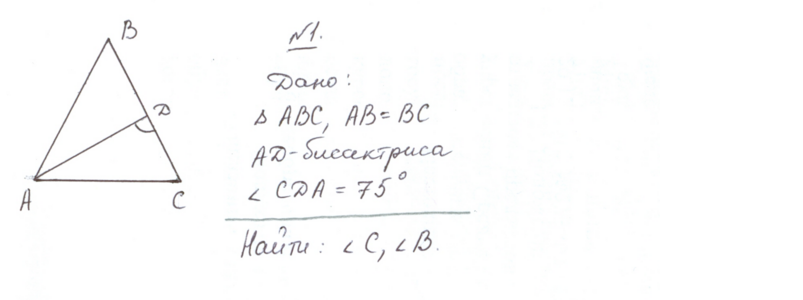 B
№1.
Дано:
Δ ABC, AB = BC
D
AD-биссектриса
∠ CDA = 75°
A
C
Найти: ∠C, ∠B.